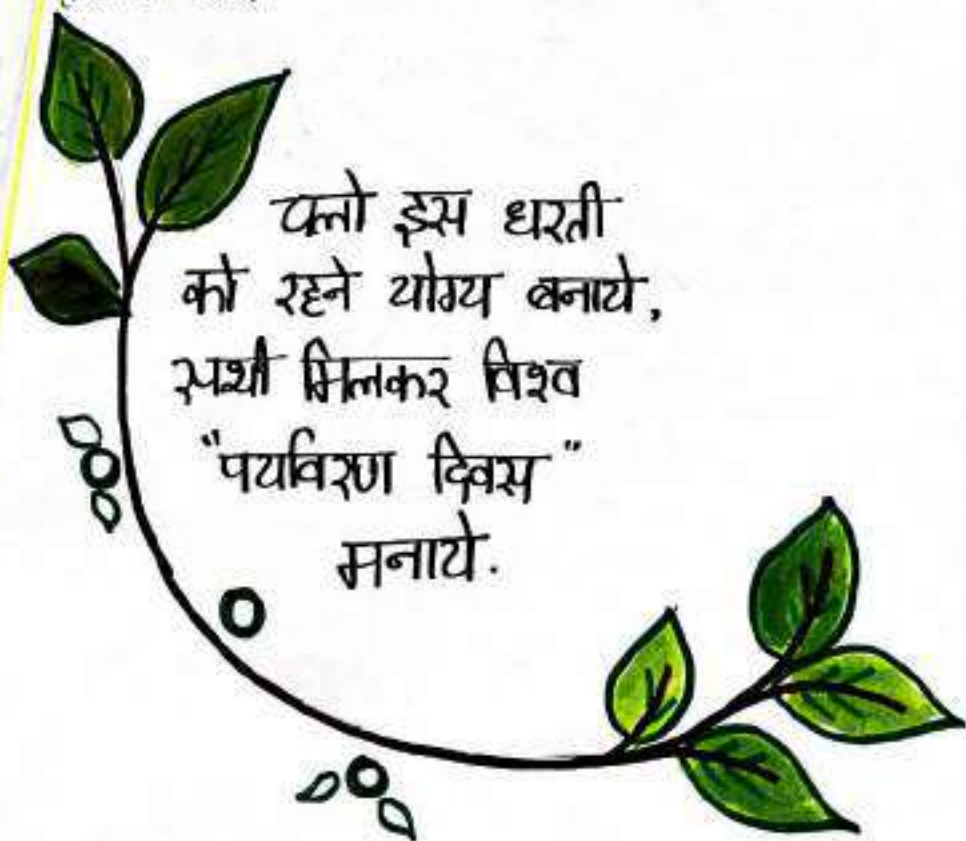 चलो इस धरती
को रहने योग्य बनाये,
सभी मिलकर विश्व
"पर्यावरण दिवस"
मनाये.